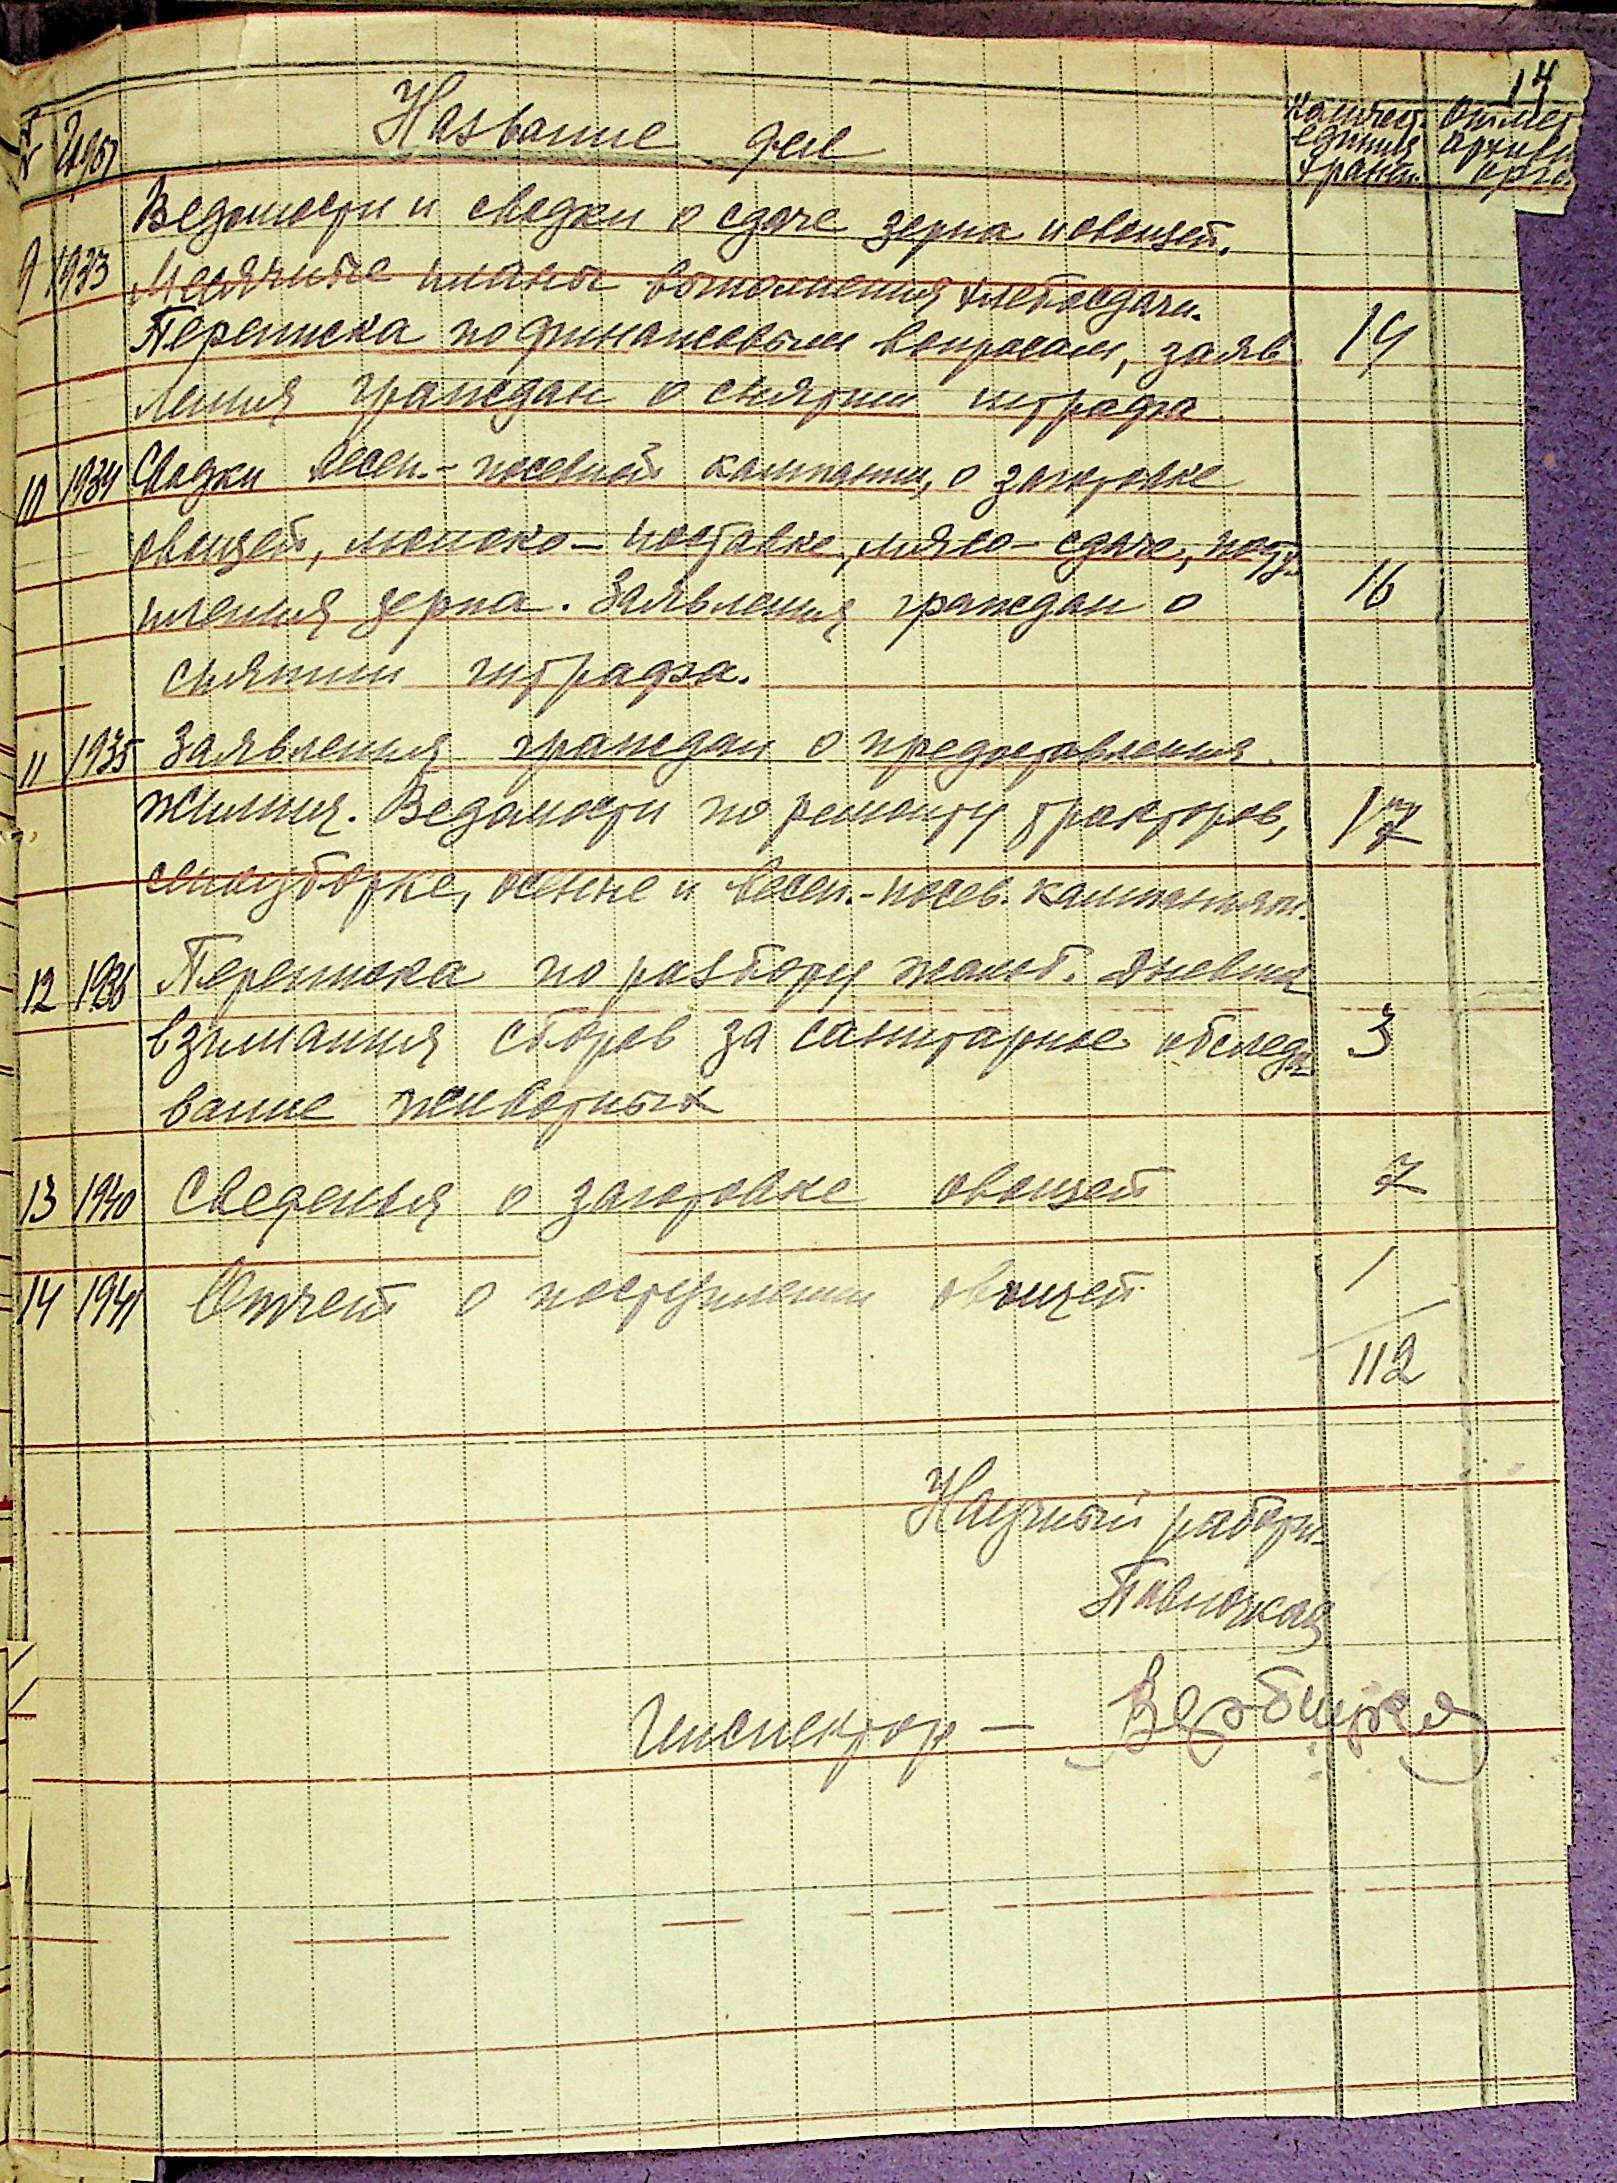 14
№ Название дел Количест. единиц хранен. Отмет архивн орга
Ведомости и сводки о сдаче зерна и овощей.
9 1933 Месячные планы выполнения хлебосдачи.
Переписка по финансовым вопросам, заяв 14
ления граждан о снятии штрафа
10 1934 Сводки весен.-посевной кампании, о заготовке
овощей, молоко-поставке, мясо-сдаче, посту
пления зерна. Заявления граждан о 16
снятии штрафа.
11 1935 Заявления граждан о предоставления
жилища. Ведомости по ремонту тракторов, 17
сеноуборке, осенне и весен.-посев. кампаниям.
12 1936 Переписка по разбору жалоб. Дневник
взимания сборов за санитарное обследо 3
вание животных
13 1940 Сведенья о заготовке овощей 7
14 1941 Отчет о поступлении овощей 1
112
Научный работн.
Павлоцкая
Инспектор — Вербицкая